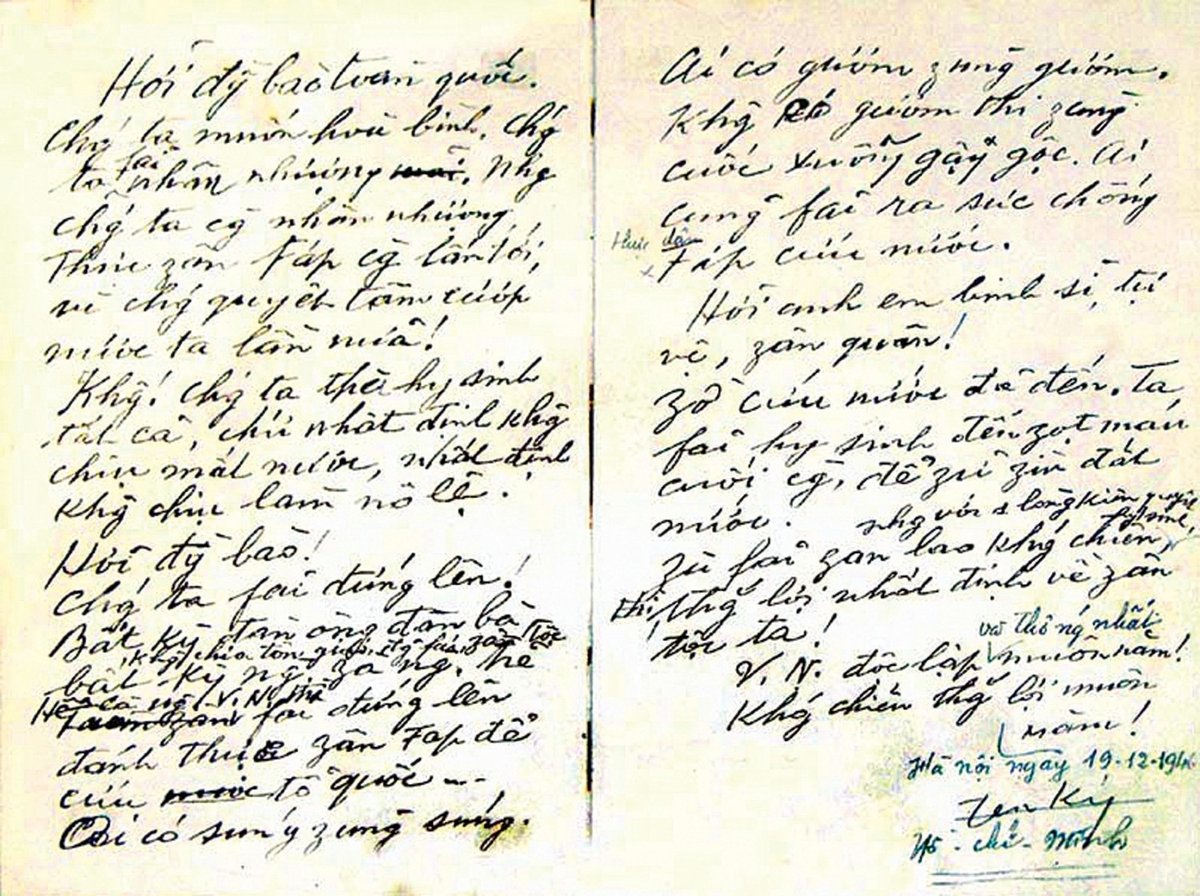 Hỡi đg̀ bào toàn quốc.
Chǵ ta muốn hoà bình, chǵ
ta fải nhân nhượng mãi. Nhg
chǵ ta cg̀ nhân nhượng,
Thực zân Fáp cg̀ lấn tới,
vì chǵ quyết tâm cướp
nước ta lần nữa!
Khg! Chǵ ta thà hy sinh
tất cả, chứ nhất định khg
chịu mất nước, nhất định
khg chịu làm nô lệ.
Hỡi đg̀ bào!
Chǵ ta fải đứng lên!
Bất kỳ đàn ông đàn bà
khg chia tôn záo, đg̉ fái, zân tộc
bất kỳ ng` zà ng` trẻ
Hễ là ng` V.N. thì
fải đứng lên
đánh thực zân Fáp để
cứu nước tổ quốc ---
Ai có súng zùng súng.
Ai có gươm zùng gươm.
Khg có gươm thì zùng
cuốc xuổng gậy gộc. Ai
cũng fải ra sức chống
thực dân
Fáp cứu nước.
Hỡi anh em binh sĩ, tự
vệ, zân quân!
Zờ cứu nước đã đến. Ta
fải hy sinh đến zọt máu
cuối cg̀, để zữ zìn đất
nước.
nhg với 1 lòng kiên quyết
hy sinh,
Zù fải zan lao khǵ chiến,
thì thắg lợi nhất định về zân
tộc ta!
và thống nhất
V.N. độc lập muôn năm!
Khǵ chiến thắg lợi muôn
năm!
Hà nội ngày 19-12-1946
Hồ - chí - Minh